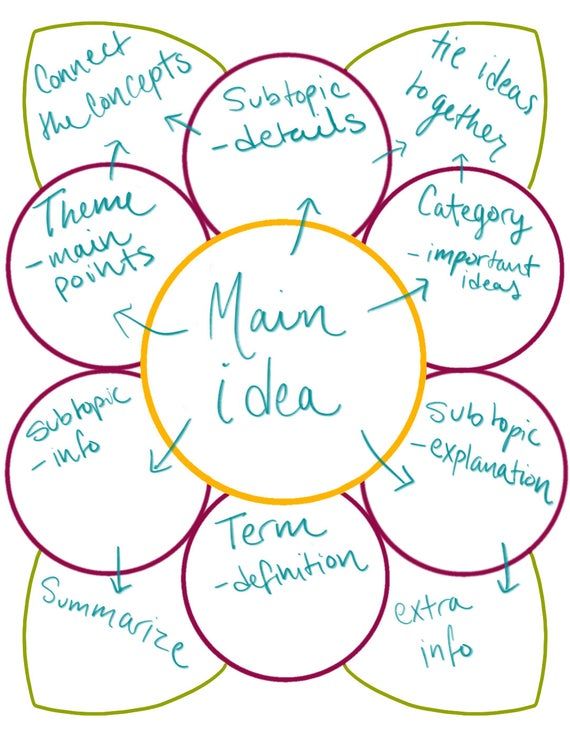 Connect
the concepts
Subtopic
-details
tie ideas
together
Theme
-main
points
Category
-important
ideas
Main
idea
Subtopic
-info
Subtopic
-explanation
Term
-definition
Summarize
extra
info